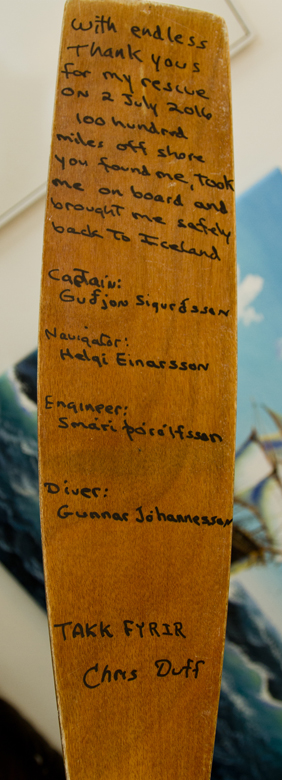 with endless
Thank yous
for my rescue
ON 2 July 2016
100 hundred
miles off shore
you found me, Took
me on board and
brought me safely
back To Iceland
Captain:
Guðjon Sigurðsson
Navigator:
Helgi Einarsson
Engineer:
Smári þórólfsson
Diver:
Gunnar Jóhannesson
TAKK FYRIR
Chris Duff